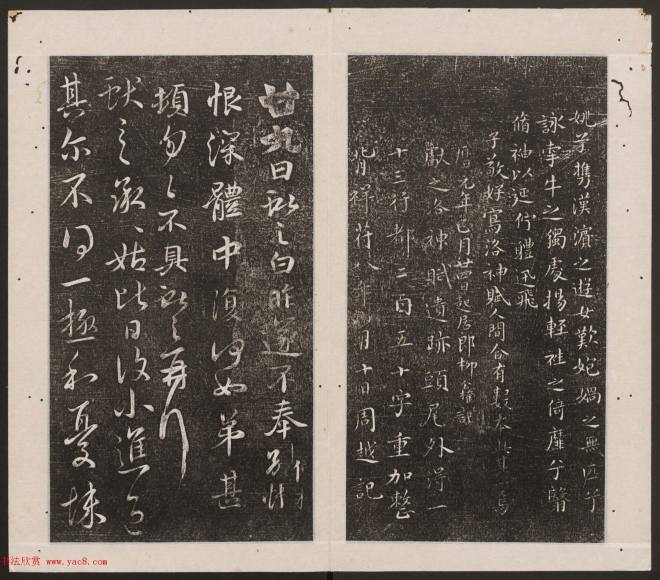 姚兮携漢濱之遊女歎匏媧之無匹兮
詠牽牛之獨處揚輕袿之倚靡兮翳
脩袖以延佇體迅飛
子敬好寫洛神賦人間合有數本此其一焉
元年正月廿四日起居郎柳
獻之洛神賦遺跡頭尾外得一
十三行都二百五十字重加整
背祥符八年 月十日周越記
廿九日獻之白昨遂不奉別悵
恨深體中復何如弟甚
頓匆匆不具獻之再拜
獻之 姑比日復小進退
其尔不
書法欣赏 www.yac8.com